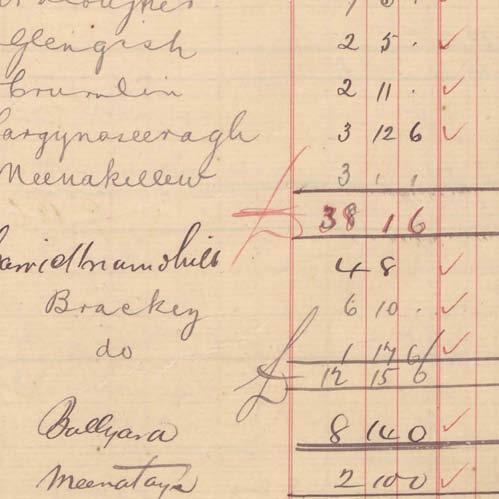 Glengish 2 5 . ✓
Crumlin 2 11 . ✓
argynaseeragh 3 12 6 ✓
Meenakillew 3 1 1
£ 38 1 6
4 8 ✓
Brackey 6 10 . ✓
do 1 17 6 ✓
£ 12 15 6
Ballyara 8 14 0 ✓
Meenatays 2 10 0 ✓